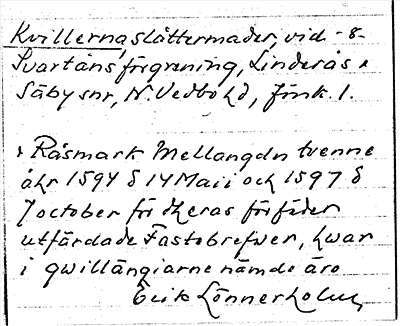 Kvillerna, slåttermader, vid -8-
Svartåns förgrening, Linderås o
Säby snr, N. Vedbo hd, Jönk. l.
i Råsmark Mellangdn tvenne
åhr 1594 d 14 Maii och 1597 d
7 october för dheras förfäder
utfärdade Fastebrefwer, hwar
i qwillängiarne nämde äro
Erik Lönnerholm